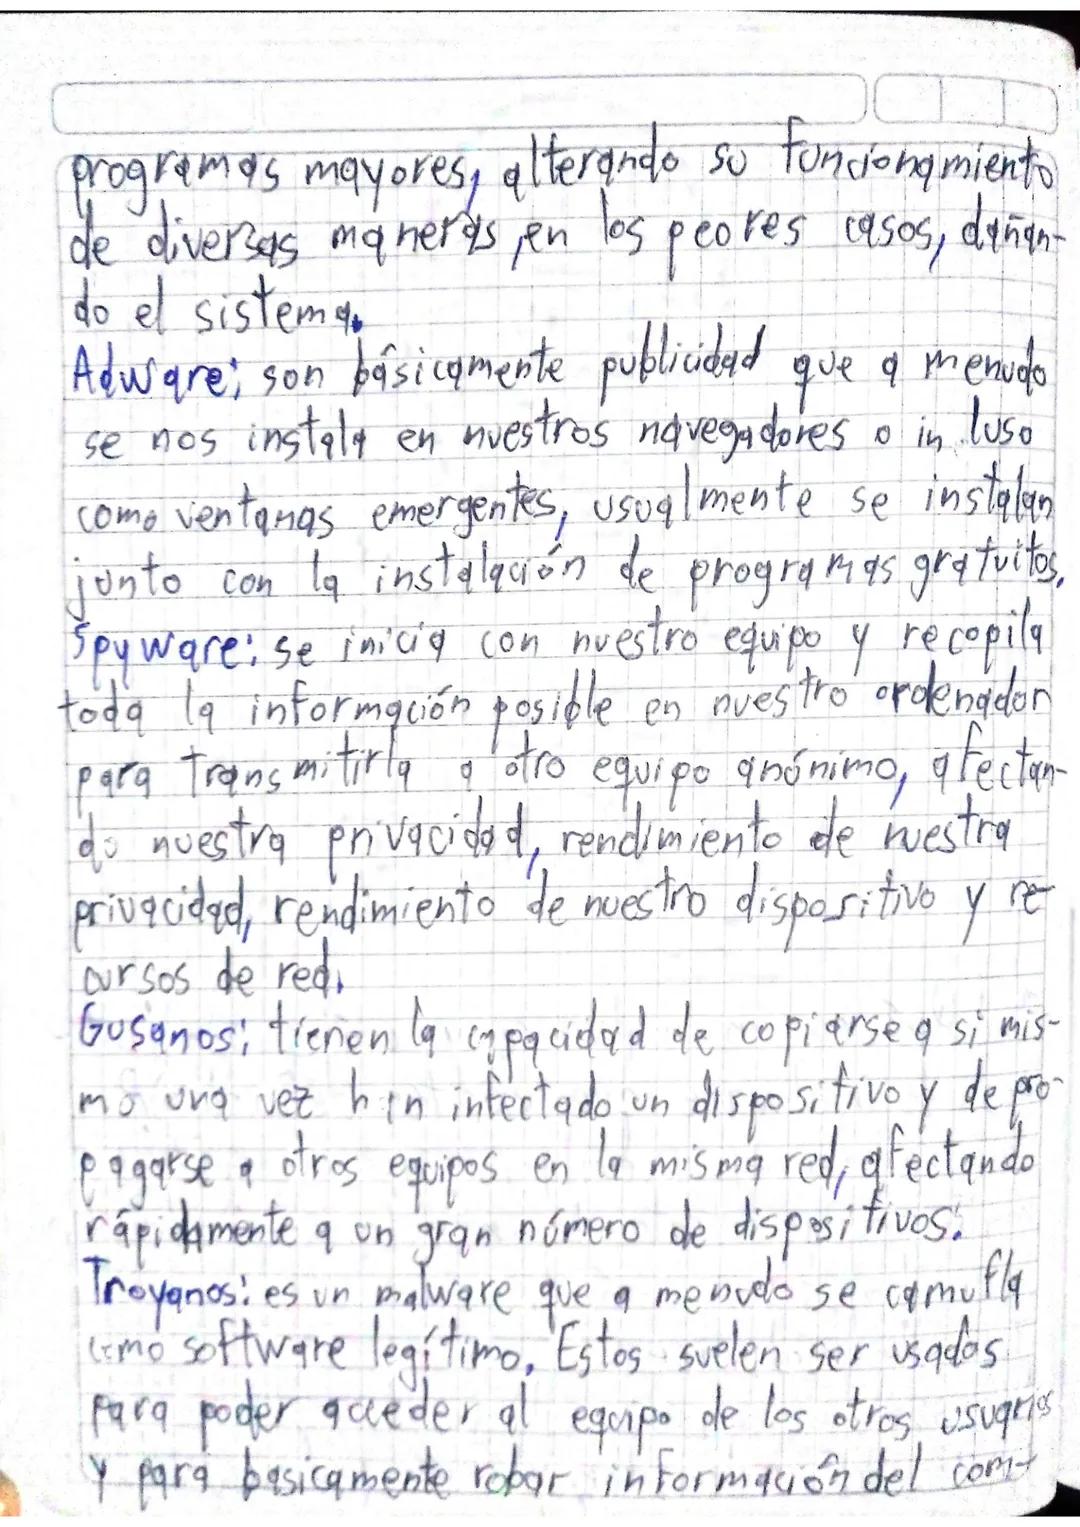 programas mayores, alterando su funcionamiento
de diversas maneras, en los peores casos, dañan-
do el sistema.
Adware: son básicamente publicidad que a menudo
se nos instala en nuestros navegadores o in luso
como ventanas emergentes, usualmente se instalan
junto con la instalación de programas gratuitos.
Spyware: se inicia con nuestro equipo y recopila
toda la información posible en nuestro ordenador
para transmitirla a otro equipo anónimo, afectan-
do nuestra privacidad, rendimiento de nuestra
privacidad, rendimiento de nuestro dispositivo y re-
cursos de red.
Gusanos: tienen la capacidad de copiarse a si mis-
mo una vez han infectado un dispositivo y de pro-
pagarse a otros equipos en la misma red, afectando
rápidamente a un gran número de dispositivos.
Troyanos: es un malware que a menudo se camufla
como software legítimo. Estos suelen ser usados
para poder acceder al equipo de los otros usuarios
y para basicamente robar información del com-